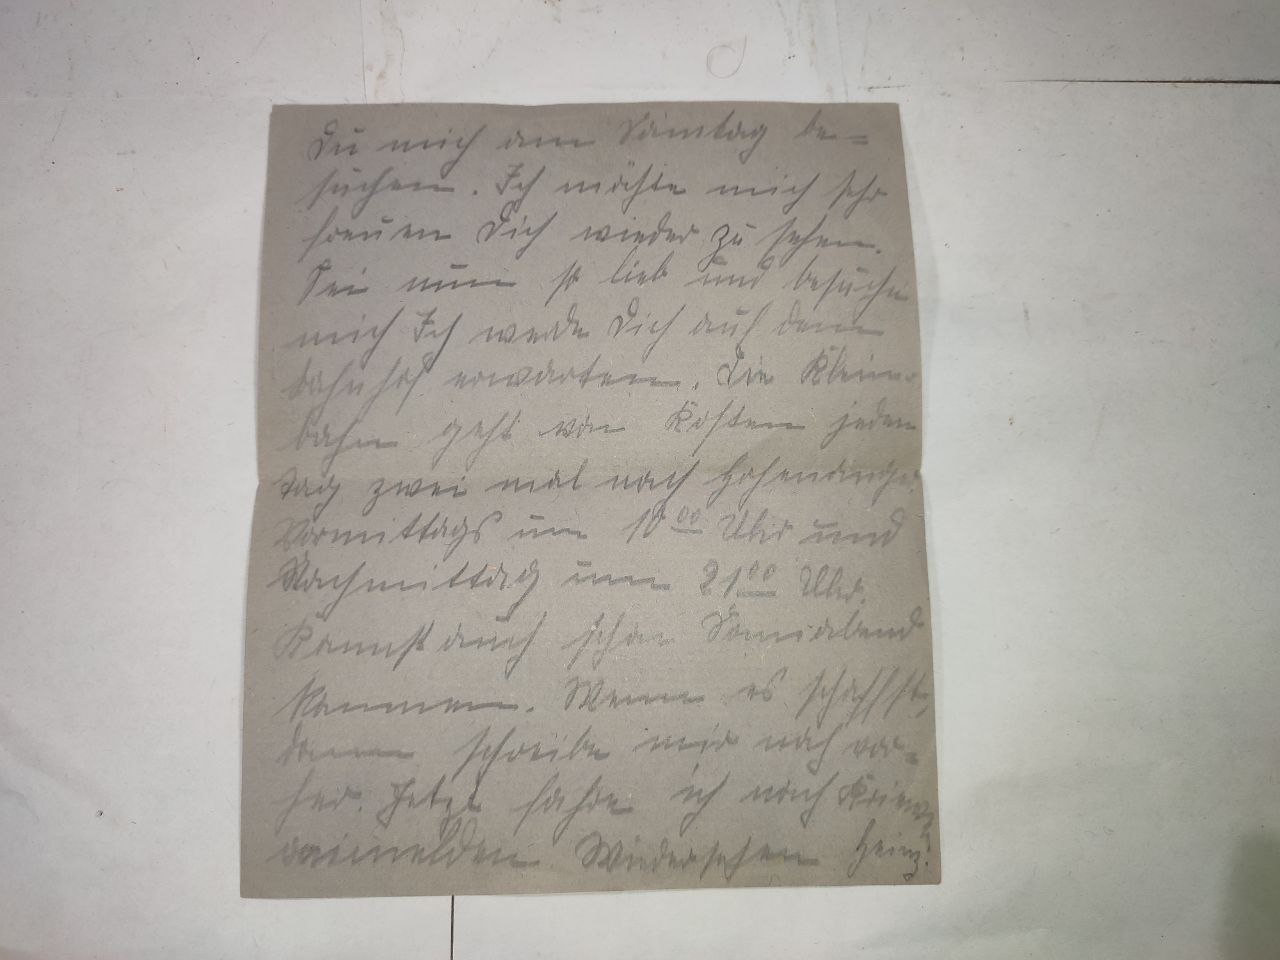 Du mich am Sonntag be=
suchen. Ich möchte mich sehr
freuen Dich wieder zu sehen.
Sei nun so lieb und besuche
mich Ich werde Dich auf dem
bahnhof erwarten. Die Klein-
bahn geht von Kosten jeden
tag zwei mal nach
Vormittags um 10 00 Uhr und
Nachmittag um 21 00 Uhr.
Kannst auch schon Sonnabend
kommen. Wenn es schaffst,
dann schreibe mir noch vor-
her. Jetzt fahre ich nach
Wiedersehen Heinz.